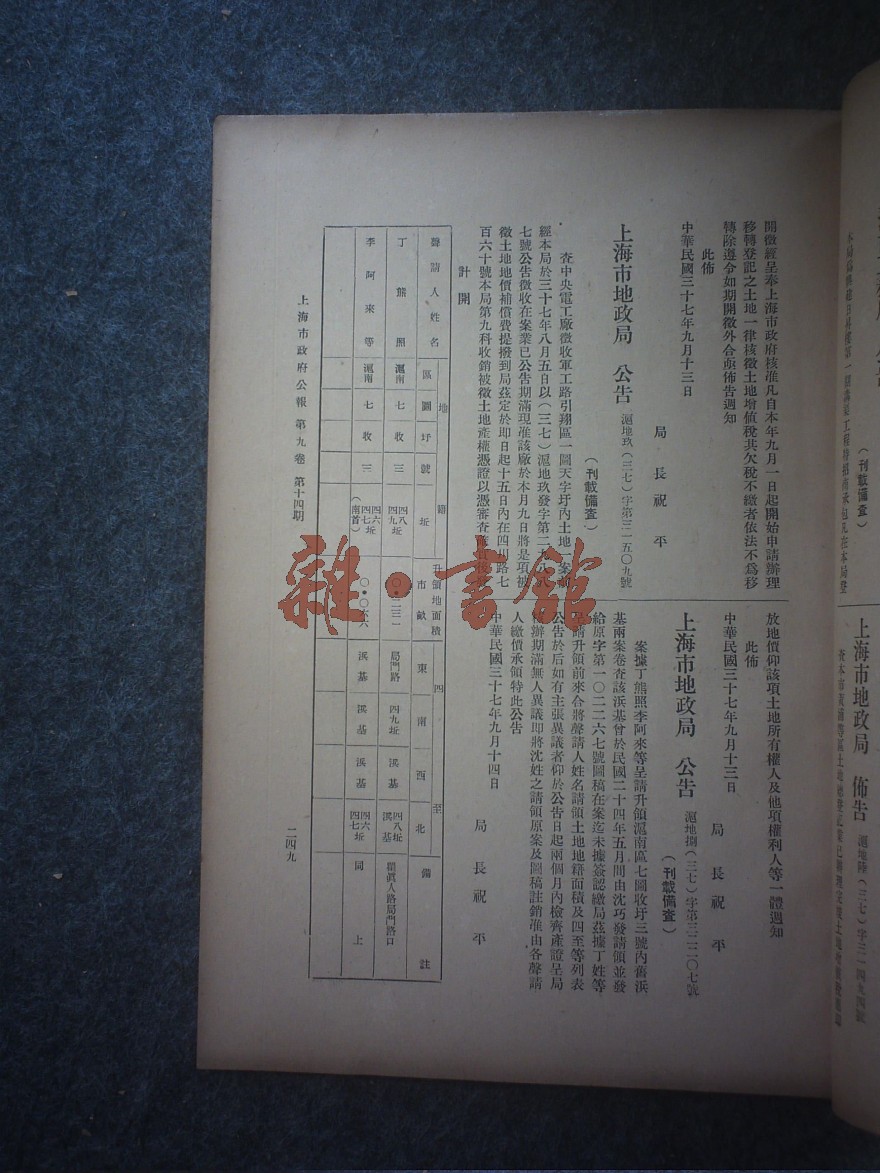 開徵經呈奉上海市政府核准凡自本年九月一日起開始申請辦理
移轉登記之土地一律核徵土地增值稅其欠稅不繳者依法不為移
轉除遵令如期開徵外合亟佈告週知
此佈
中華民國三十七年九月十三日
局長祝平
上海市地政局 公告 滬地玖(三七)字第三一五〇九號
(刊載備查)
查中央電工廠徵收軍工路引翔區一圖天字圩內土地一案前
經本局於三十七年八月五日以(三七)滬地玖發字第二九八八
七號公告徵收在案業已公告期滿現准該廠於本月九日將是項被
徵土地地價補償費提撥到局茲定於即日起十五日內在四川路七
百六十號本局第九科收銷被徵土地產權憑證以憑審查
放地價仰該項土地所有權人及他項權利人等一體週知
此佈
中華民國三十七年九月十三日
局長祝平
上海市地政局 公告 滬地捌(三七)字第三二二〇七號
(刊載備查)
案據丁熊照李阿來等呈請升領滬南區七圖收圩三號內舊浜
基兩案卷查該浜基曾於民國二十四年五月間由沈巧發請領並發
給原字第一〇二二六七號圖稿在案迄未據簽認繳局茲據丁姓等
呈請升領前來合將聲請人姓名請領土地地籍面積及四至等列表
公告於后如有主張異議者仰於公告日起兩個月內檢齊產證呈局
辦期滿無人異議即將沈姓之請領原案及圖稿註銷准由各聲請
人繳價承領特此公告
中華民國三十七年九月十四日
局長祝平
計開
聲請人姓名 地籍 區 圖 圩 號 坵 升領地面積 市畝 四至 東 南 西 北 備註
丁熊照 滬南 七 收 三 四八 四九坵 〇·二三二 局門路 四九坵 浜基 四八坵 浜基 瞿真人路局門路口
李阿來等 滬南 七 收 三 四六 四七坵 (南首) 〇·〇六六 浜基 浜基 浜基 四六 四七坵 同上
上海市政府公報 第九卷 第十四期
二四九
(刊載備查)
上海市地政局 佈告
雜·書館